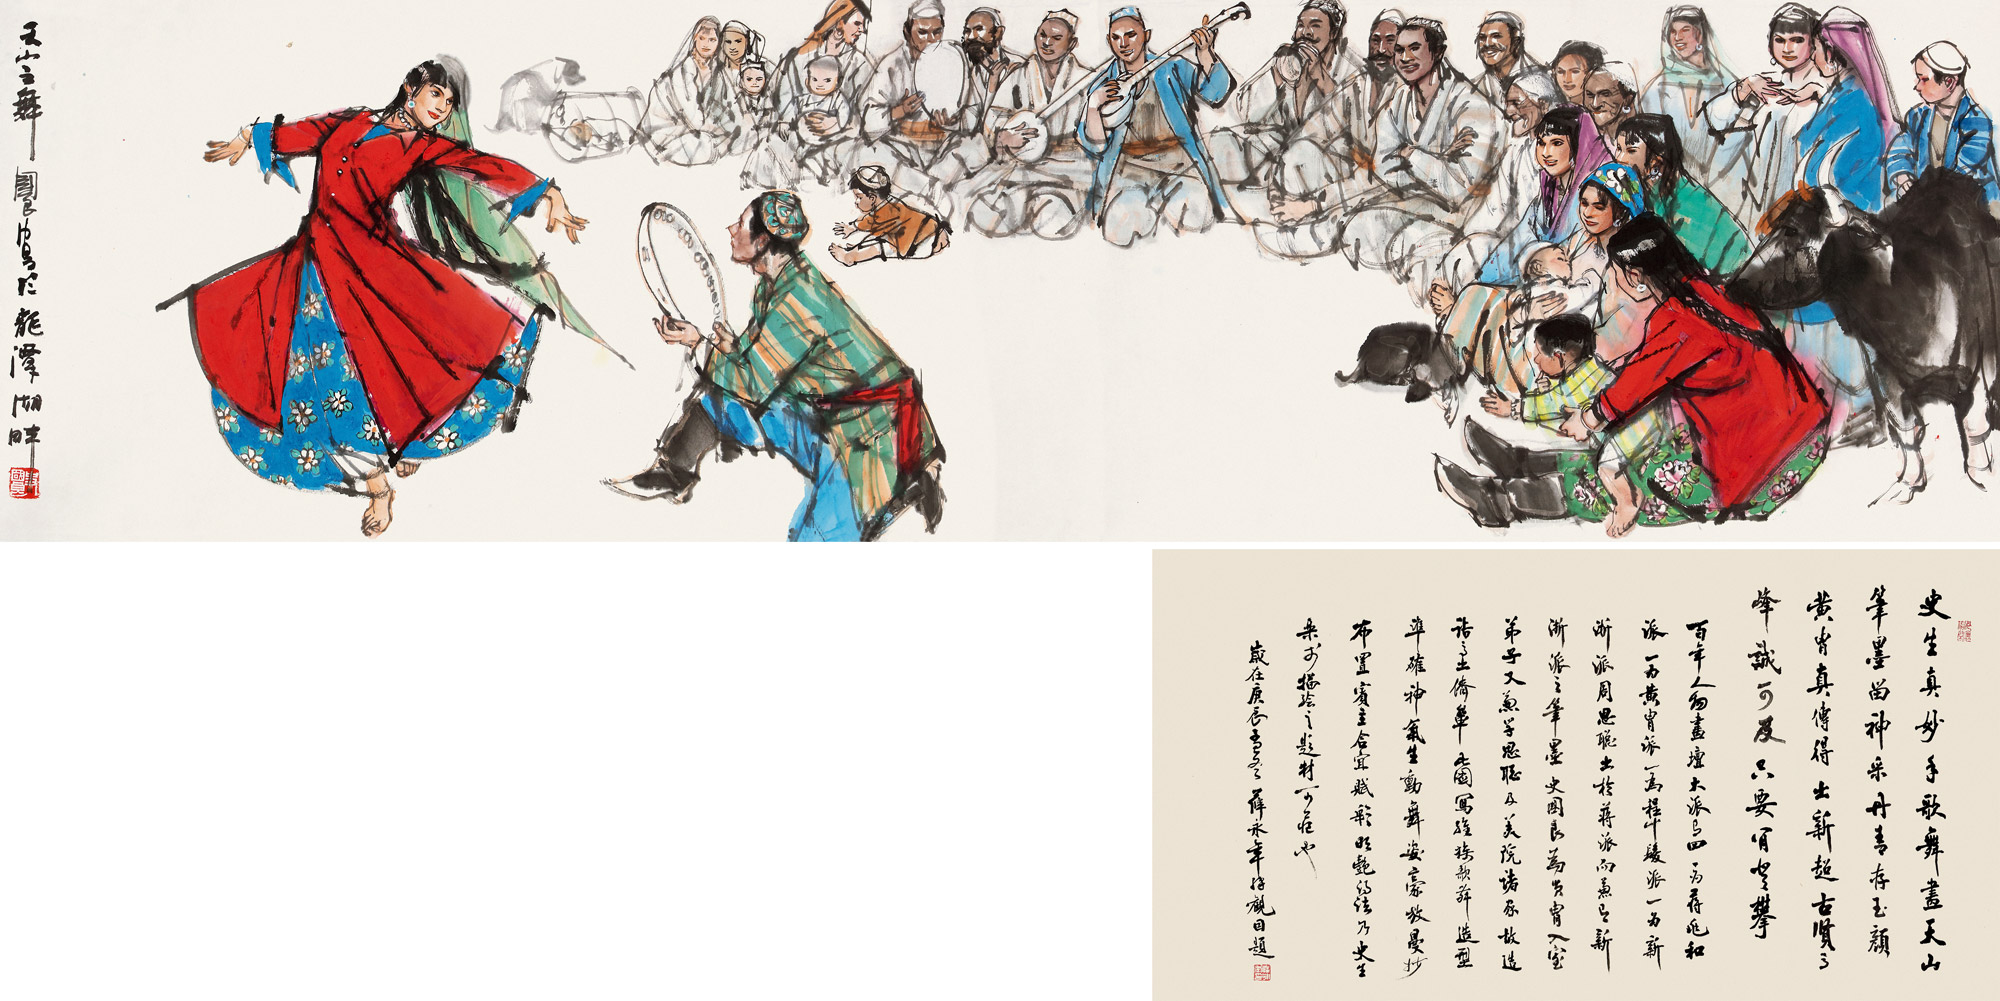 天山之舞 國良寫於龍潭湖畔
史生真妙手歌舞畫天山
筆墨留神采丹青存玉顏
黃胄真傳得出新超古賢高
峰誠可及只要肯登攀
百年人物畫壇大派有四一為蔣兆和
派一為黃胄派一為程十髮派一為新
浙派周思聰出於蔣派而兼有新
浙派之筆墨史國良為黃胄入室
弟子又兼學思聰及美院諸家故造
詣高出儕輩此圖寫維族歌舞造型
準確神氣生動舞姿豪放曼妙
布置賓主合宜賦彩明艷得法乃史生
最可描繪之題材可
歲在庚辰 薛永年拜觀因題